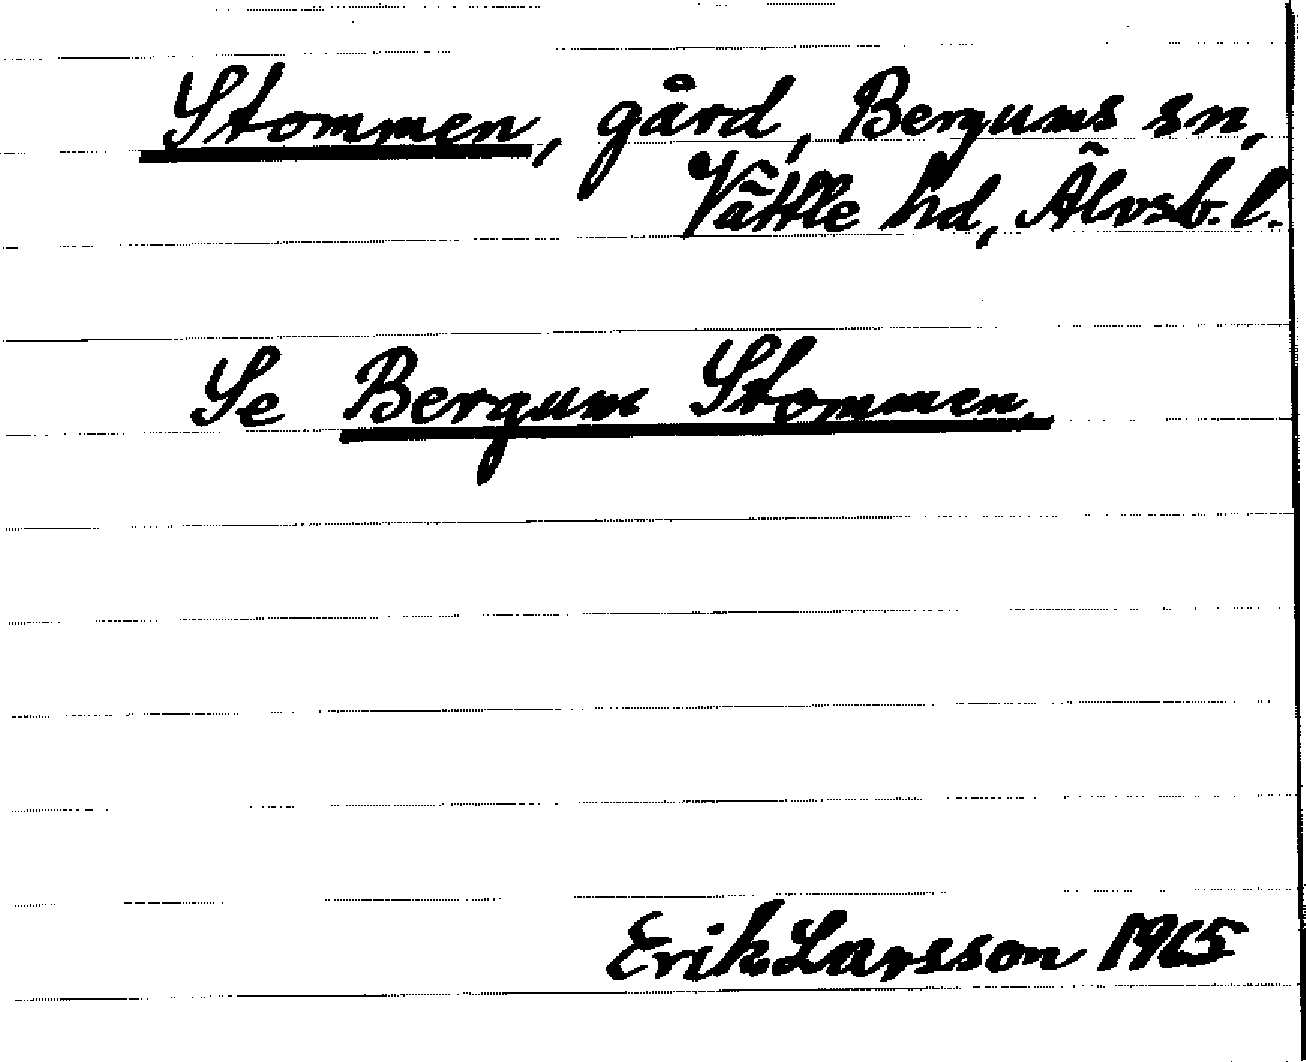 Stommen, gård, Bergums sn,
Vättle hd, Älvsb. l.
Se Bergum Stommen.
Erik Larsson 1965